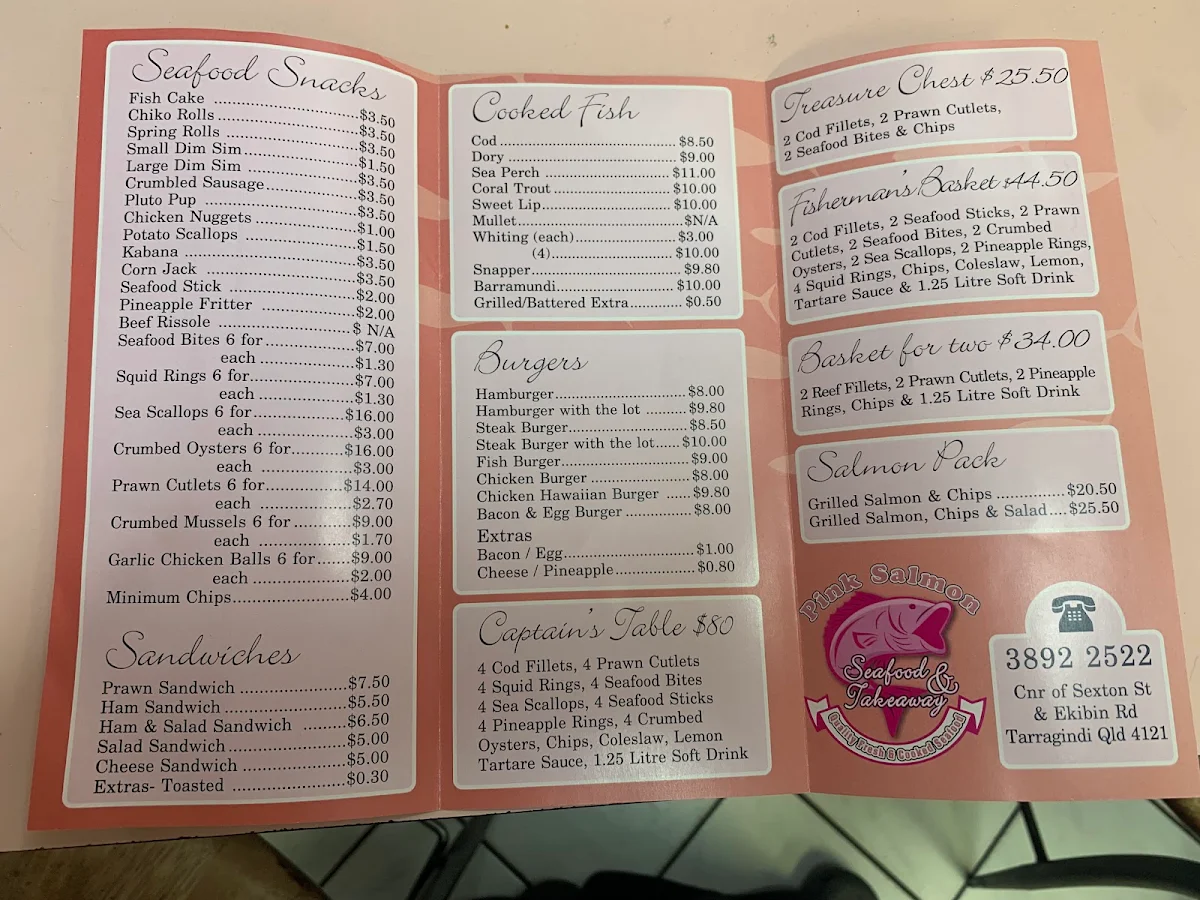 Seafood Snacks
Fish Cake ..........................$3.50
Chiko Rolls ..........................$3.50
Spring Rolls ..........................$3.50
Small Dim Sim..........................$1.50
Large Dim Sim ..........................$3.50
Crumbled Sausage..........................$3.50
Pluto Pup ..........................$3.50
Chicken Nuggets ..........................$1.00
Potato Scallops ..........................$1.50
Kabana ..........................$3.50
Corn Jack ..........................$3.50
Seafood Stick ..........................$2.00
Pineapple Fritter ..........................$2.00
Beef Rissole ..........................$ N/A
Seafood Bites 6 for..................$7.00
each ..................$1.30
Squid Rings 6 for.....................$7.00
each ..................$1.30
Sea Scallops 6 for..................$16.00
each ..................$3.00
Crumbed Oysters 6 for...........$16.00
each ..................$3.00
Prawn Cutlets 6 for................$14.00
each ..................$2.70
Crumbed Mussels 6 for...........$9.00
each ..................$1.70
Garlic Chicken Balls 6 for.......$9.00
each ..................$2.00
Minimum Chips.......................$4.00
Sandwiches
Prawn Sandwich .....................$7.50
Ham Sandwich ........................$5.50
Ham & Salad Sandwich ........$6.50
Salad Sandwich.......................$5.00
Cheese Sandwich ....................$5.00
Extras- Toasted ......................$0.30
Cooked Fish
Cod....................................$8.50
Dory...................................$9.00
Sea Perch ..........................$11.00
Coral Trout........................$10.00
Sweet Lip...........................$10.00
Mullet.................................$N/A
Whiting (each)....................$3.00
(4)........................$10.00
Snapper..............................$9.80
Barramundi........................$10.00
Grilled/Battered Extra...........$0.50
Burgers
Hamburger...........................$8.00
Hamburger with the lot ........$9.80
Steak Burger........................$8.50
Steak Burger with the lot......$10.00
Fish Burger..........................$9.00
Chicken Burger ....................$8.00
Chicken Hawaiian Burger ......$9.80
Bacon & Egg Burger ..............$8.00
Extras
Bacon / Egg..........................$1.00
Cheese / Pineapple................$0.80
Captain's Table $80
4 Cod Fillets, 4 Prawn Cutlets
4 Squid Rings, 4 Seafood Bites
4 Sea Scallops, 4 Seafood Sticks
4 Pineapple Rings, 4 Crumbed
Oysters, Chips, Coleslaw, Lemon
Tartare Sauce, 1.25 Litre Soft Drink
Treasure Chest $25.50
2 Cod Fillets, 2 Prawn Cutlets,
2 Seafood Bites & Chips
Fisherman's Basket $44.50
2 Cod Fillets, 2 Seafood Sticks, 2 Prawn
Cutlets, 2 Seafood Bites, 2 Crumbed
Oysters, 2 Sea Scallops, 2 Pineapple Rings,
4 Squid Rings, Chips, Coleslaw, Lemon,
Tartare Sauce & 1.25 Litre Soft Drink
Basket for two $34.00
2 Reef Fillets, 2 Prawn Cutlets, 2 Pineapple
Rings, Chips & 1.25 Litre Soft Drink
Salmon Pack
Grilled Salmon & Chips ..............$20.50
Grilled Salmon, Chips & Salad....$25.50
Pink Salmon
Seafood &
Takeaway
Quality Fresh & Cooked Seafood
3892 2522
Cnr of Sexton St
& Ekibin Rd
Tarragindi Qld 4121